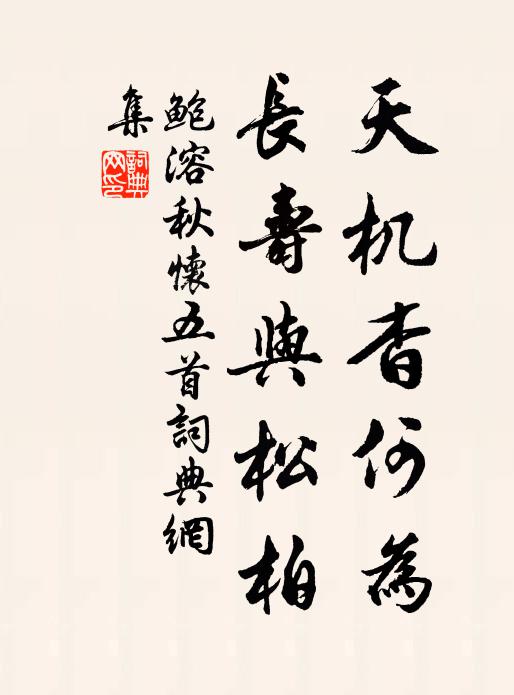 天机杳何為
長壽與松柏
鮑溶秋懷五首詞典網
集
詞典網印